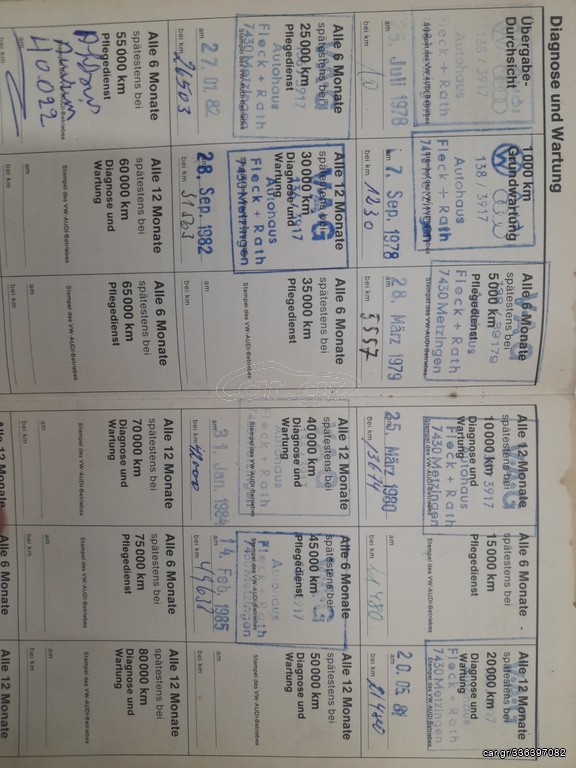 Diagnose und Wartung
Übergabe-
Durchsicht
138 / 3917
Autohaus
Fleck + Rath
7430 Metzingen
Stempel des VW-AUDI-Betriebes
am
25. Juli 1978
bei km 10
1000 km
Grundwartung
138 / 3917
Autohaus
Fleck + Rath
7430 Metzingen
am 7. Sep. 1978
bei km 1230
Alle 6 Monate
spätestens bei
5000 km
Pflegedienst
Fleck + Rath
7430 Metzingen
Stempel des VW-AUDI-Betriebes
am 28. März 1979
bei km 5557
Alle 12 Monate
spätestens bei
10000 km
Diagnose und
Wartung
3917
Autohaus
Fleck + Rath
7430 Metzingen
am 25. März 1980
bei km 13674
Alle 6 Monate
spätestens bei
15000 km
Pflegedienst
Stempel des VW-AUDI-Betriebes
am
bei km
Alle 12 Monate
spätestens bei
20000 km
Diagnose und
Wartung
Fleck + Rath
7430 Metzingen
am 20. 05. 81
bei km 21420
Alle 6 Monate
spätestens bei
25000 km
Pflegedienst
3917
Autohaus
Fleck + Rath
7430 Metzingen
Stempel des VW-AUDI-Betriebes
am 27. 01. 82
bei km 26503
Alle 12 Monate
spätestens bei
30000 km
Diagnose und
Wartung
VAG
3917
Autohaus
Fleck + Rath
7430 Metzingen
am 28. Sep. 1982
bei km 31563
Alle 6 Monate
spätestens bei
35000 km
Pflegedienst
Stempel des VW-AUDI-Betriebes
am
bei km
Alle 12 Monate
spätestens bei
40000 km
Diagnose und
Wartung
Autohaus
Fleck + Rath
7430 Metzingen
am 31. Jan. 1984
bei km
Alle 6 Monate
spätestens bei
45000 km
Pflegedienst
3917
Autohaus
Fleck + Rath
7430 Metzingen
Stempel des VW-AUDI-Betriebes
am 14. Feb. 1985
bei km 49658
Alle 12 Monate
spätestens bei
50000 km
Diagnose und
Wartung
Stempel des VW-AUDI-Betriebes
am
bei km
Alle 6 Monate
spätestens bei
55000 km
Pflegedienst
40.022
Alle 12 Monate
spätestens bei
60000 km
Diagnose und
Wartung
Stempel des VW-AUDI-Betriebes
am
bei km
Alle 6 Monate
spätestens bei
65000 km
Pflegedienst
Stempel des VW-AUDI-Betriebes
am
bei km
Alle 12 Monate
spätestens bei
70000 km
Diagnose und
Wartung
Stempel des VW-AUDI-Betriebes
am
bei km
Alle 6 Monate
spätestens bei
75000 km
Pflegedienst
Stempel des VW-AUDI-Betriebes
am
bei km
Alle 12 Monate
spätestens bei
80000 km
Diagnose und
Wartung
Stempel des VW-AUDI-Betriebes
am
bei km
Alle 12 Monate
Alle 6 Monate
Alle 12 Monate
car.gr/336397082